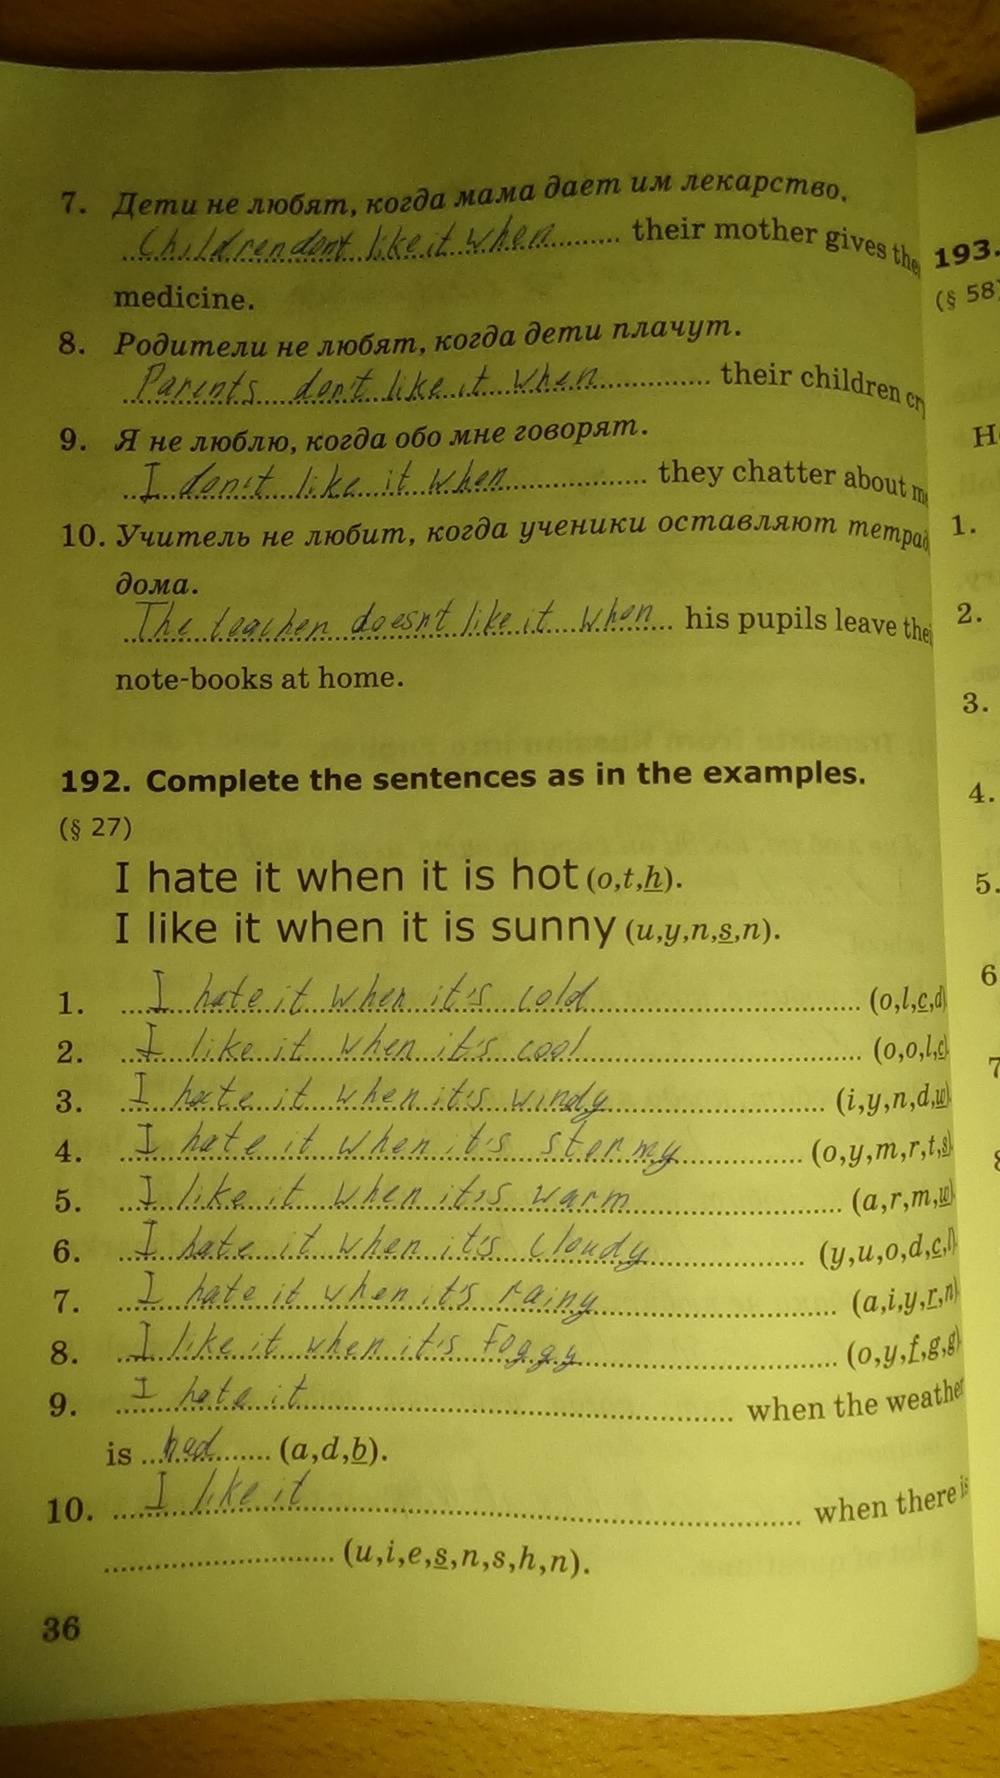 7. Дети не любят, когда мама дает им лекарство.
Children dont like it when their mother gives the
medicine.
8. Родители не любят, когда дети плачут.
Parents don't like it when their children cry
9. Я не люблю, когда обо мне говорят.
I don't like it when they chatter about me
10. Учитель не любит, когда ученики оставляют тетрад
дома.
The teacher doesn't like it when his pupils leave thei
note-books at home.
192. Complete the sentences as in the examples.
(§ 27)
I hate it when it is hot (o,t,h).
I like it when it is sunny (u,y,n,s,n).
1. I hate it when it's cold (o,l,c,d)
2. I like it when it's cool (o,o,l,c)
3. I hate it when it's windy (i,y,n,d,w)
4. I hate it when it's stormy (o,y,m,r,t,s)
5. I like it when it's warm (a,r,m,w)
6. I hate it when it's cloudy (y,u,o,d,c,l)
7. I hate it when it's rainy (a,i,y,r,n)
8. I like it when it's foggy (o,y,f,g,g)
9. I hate it when the weather
is bad (a,d,b).
10. I like it when there is
(u,i,e,s,n,s,h,n).
36
193.
(§ 58)
Н
1.
2.
3.
4.
5.
6
7
8